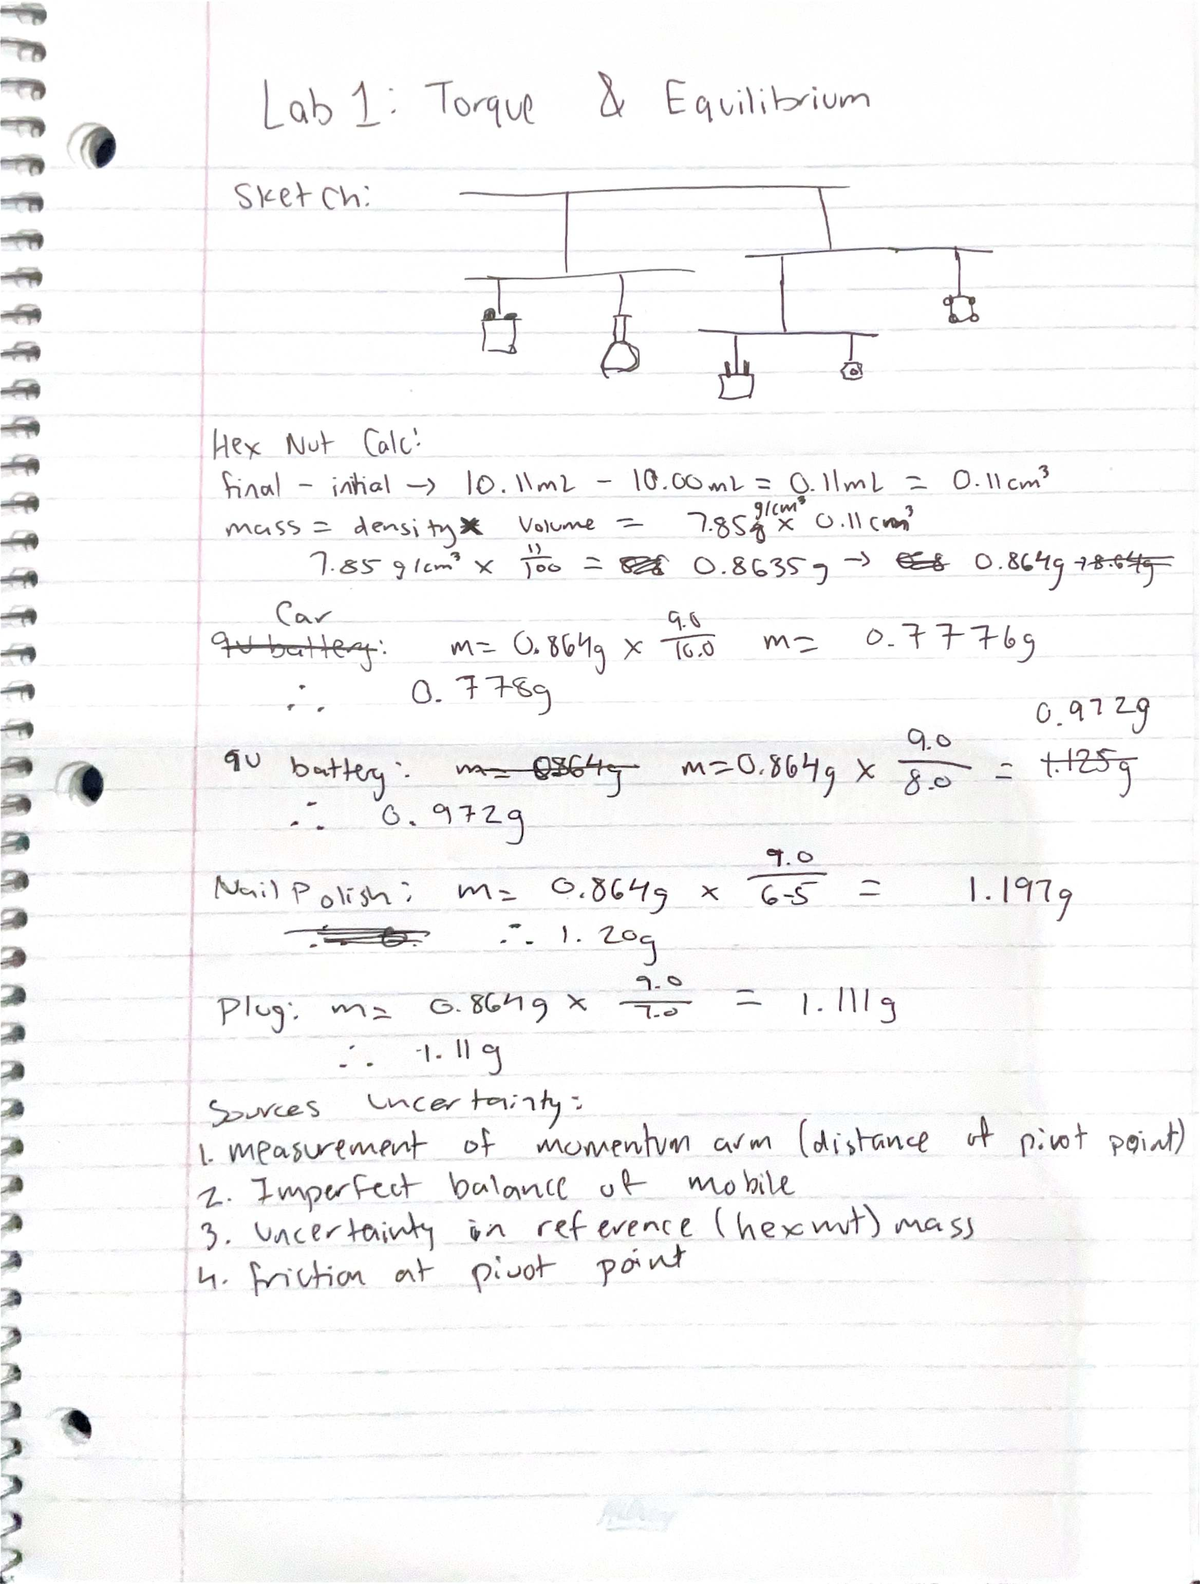 Lab 1: Torque & Equilibrium
Sketch:
Hex Nut Calc:
final - initial → 10.11mL - 10.00mL = 0.11mL = 0.11cm³
mass = density × volume = 7.85 g/cm³ × 0.11cm³
7.85 g/cm³ × 11/100 = 0.8635g → 0.864g → 8.64g
Car
9v battery: m = 0.864g × 9.0/10.0 m = 0.7776g
∴ 0.778g
0.972g
9v battery: m = 0.864g m = 0.864g × 9.0/8.0 = 1.125g
∴ 0.972g
Nail Polish: m = 0.864g × 9.0/6.5 = 1.197g
∴ 1.20g
Plug: m = 0.864g × 9.0/7.0 = 1.111g
∴ 1.11g
Sources uncertainty:
1. measurement of momentum arm (distance of pivot point)
2. Imperfect balance of mobile
3. uncertainty in reference (hexnut) mass
4. friction at pivot point